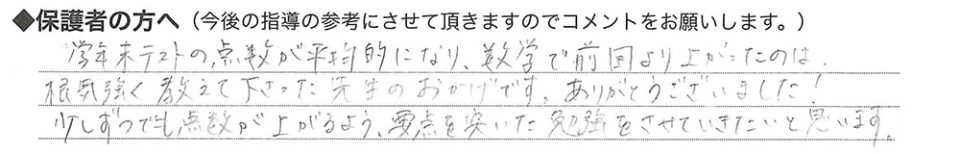 ◆保護者の方へ（今後の指導の参考にさせて頂きますのでコメントをお願いします。）
学年末テストの点数が平均的になり、数学で前回より上がったのは
根気強く教えて下さった先生のおかげです。ありがとうございました！
少しずつでも点数が上がるよう、要点を突いた勉強をさせていきたいと思います。